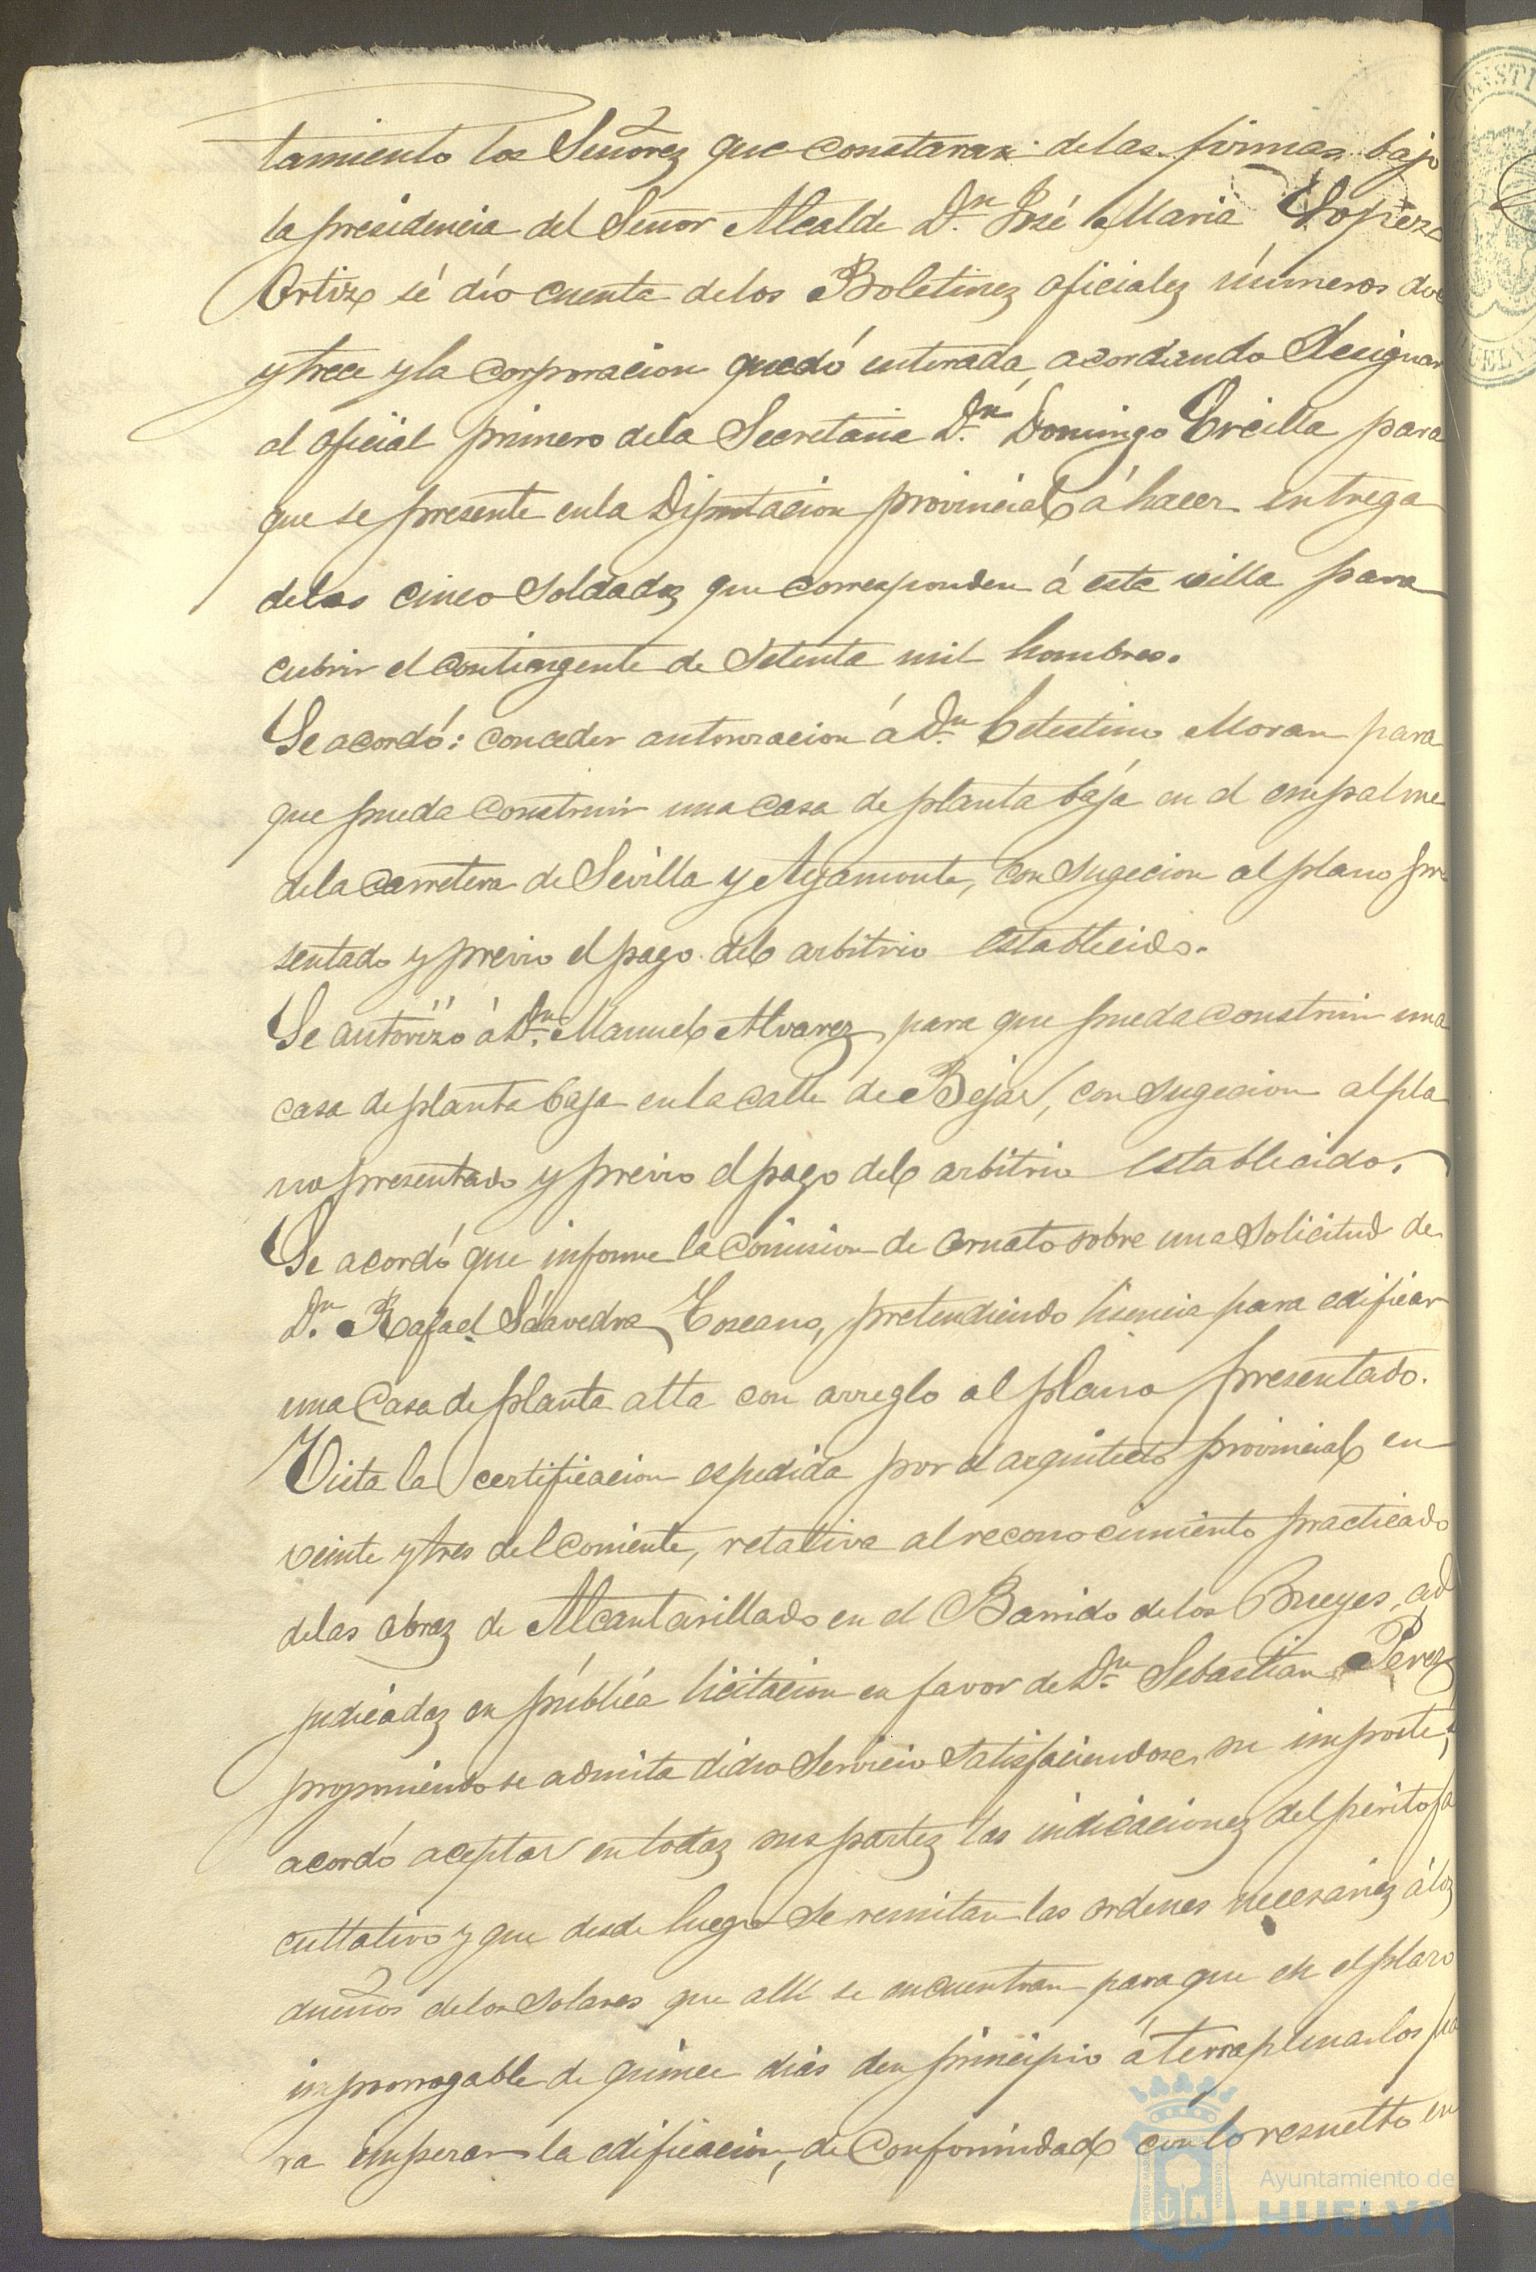 tamiento los Señorez que constaran de las firmas bajo
la presidencia del Señor Alcalde D.n José Maria Lopeze
Ortiz sé dio cuenta de los Boletinez oficialez números doc
y trece y la corporacion quedó enterada, acordando designar
al oficial primero de la Secretaria D.n Domingo Ercilla para
que se presente en la Diputacion provincial á hacer entrega
de los cinco Soldadoz que corresponden á esta villa para
cubrir el contingente de Setenta mil hombres.
Se acordó: conceder autorizacion á D.n Celestino Moran para
que pueda construir una casa de planta baja en el empalme
de la carretera de Sevilla y Ayamonte, con Sugecion al plano pre
sentado y previo el pago del arbitrio establecido.
Se autorizó á D.n Manuel Alvarez para que pueda construir una
casa de planta baja en la calle de Bejar, con Sugecion al pla
no presentado y previo el pago del arbitrio establecido.
Se acordó que informe la Comision de Ornato sobre una Solicitud de
D.n Rafael Sáavedra Toscano, pretendiendo lisencia para edificar
una Casa de planta alta con arreglo al plano presentado.
Vista la certificacion espedida por el arquitecto provincial en
veinte y tres del corriente, relativa al reconocimiento practicado
de las obraz de Alcantarillado en el Barrido de los Bueyes, ad
judicadaz en pública licitacion en favor de D.n Sebastian Perez
proponiendo se admita dicho Servicio Satisfaciendose su importe,
acordó aceptar en todaz sus partez las indicacionez del perito fa
cultativo y que desde luego Se remitan las ordenes necesariaz á loz
dueños de los Solares que allí se encuentran para que en el plazo
improrrogable de quince dias den principio á terraplenarlos pa
ra empezar la edificacion, de Conformidad con lo resuelto en
Ayuntamiento de
HUELVA